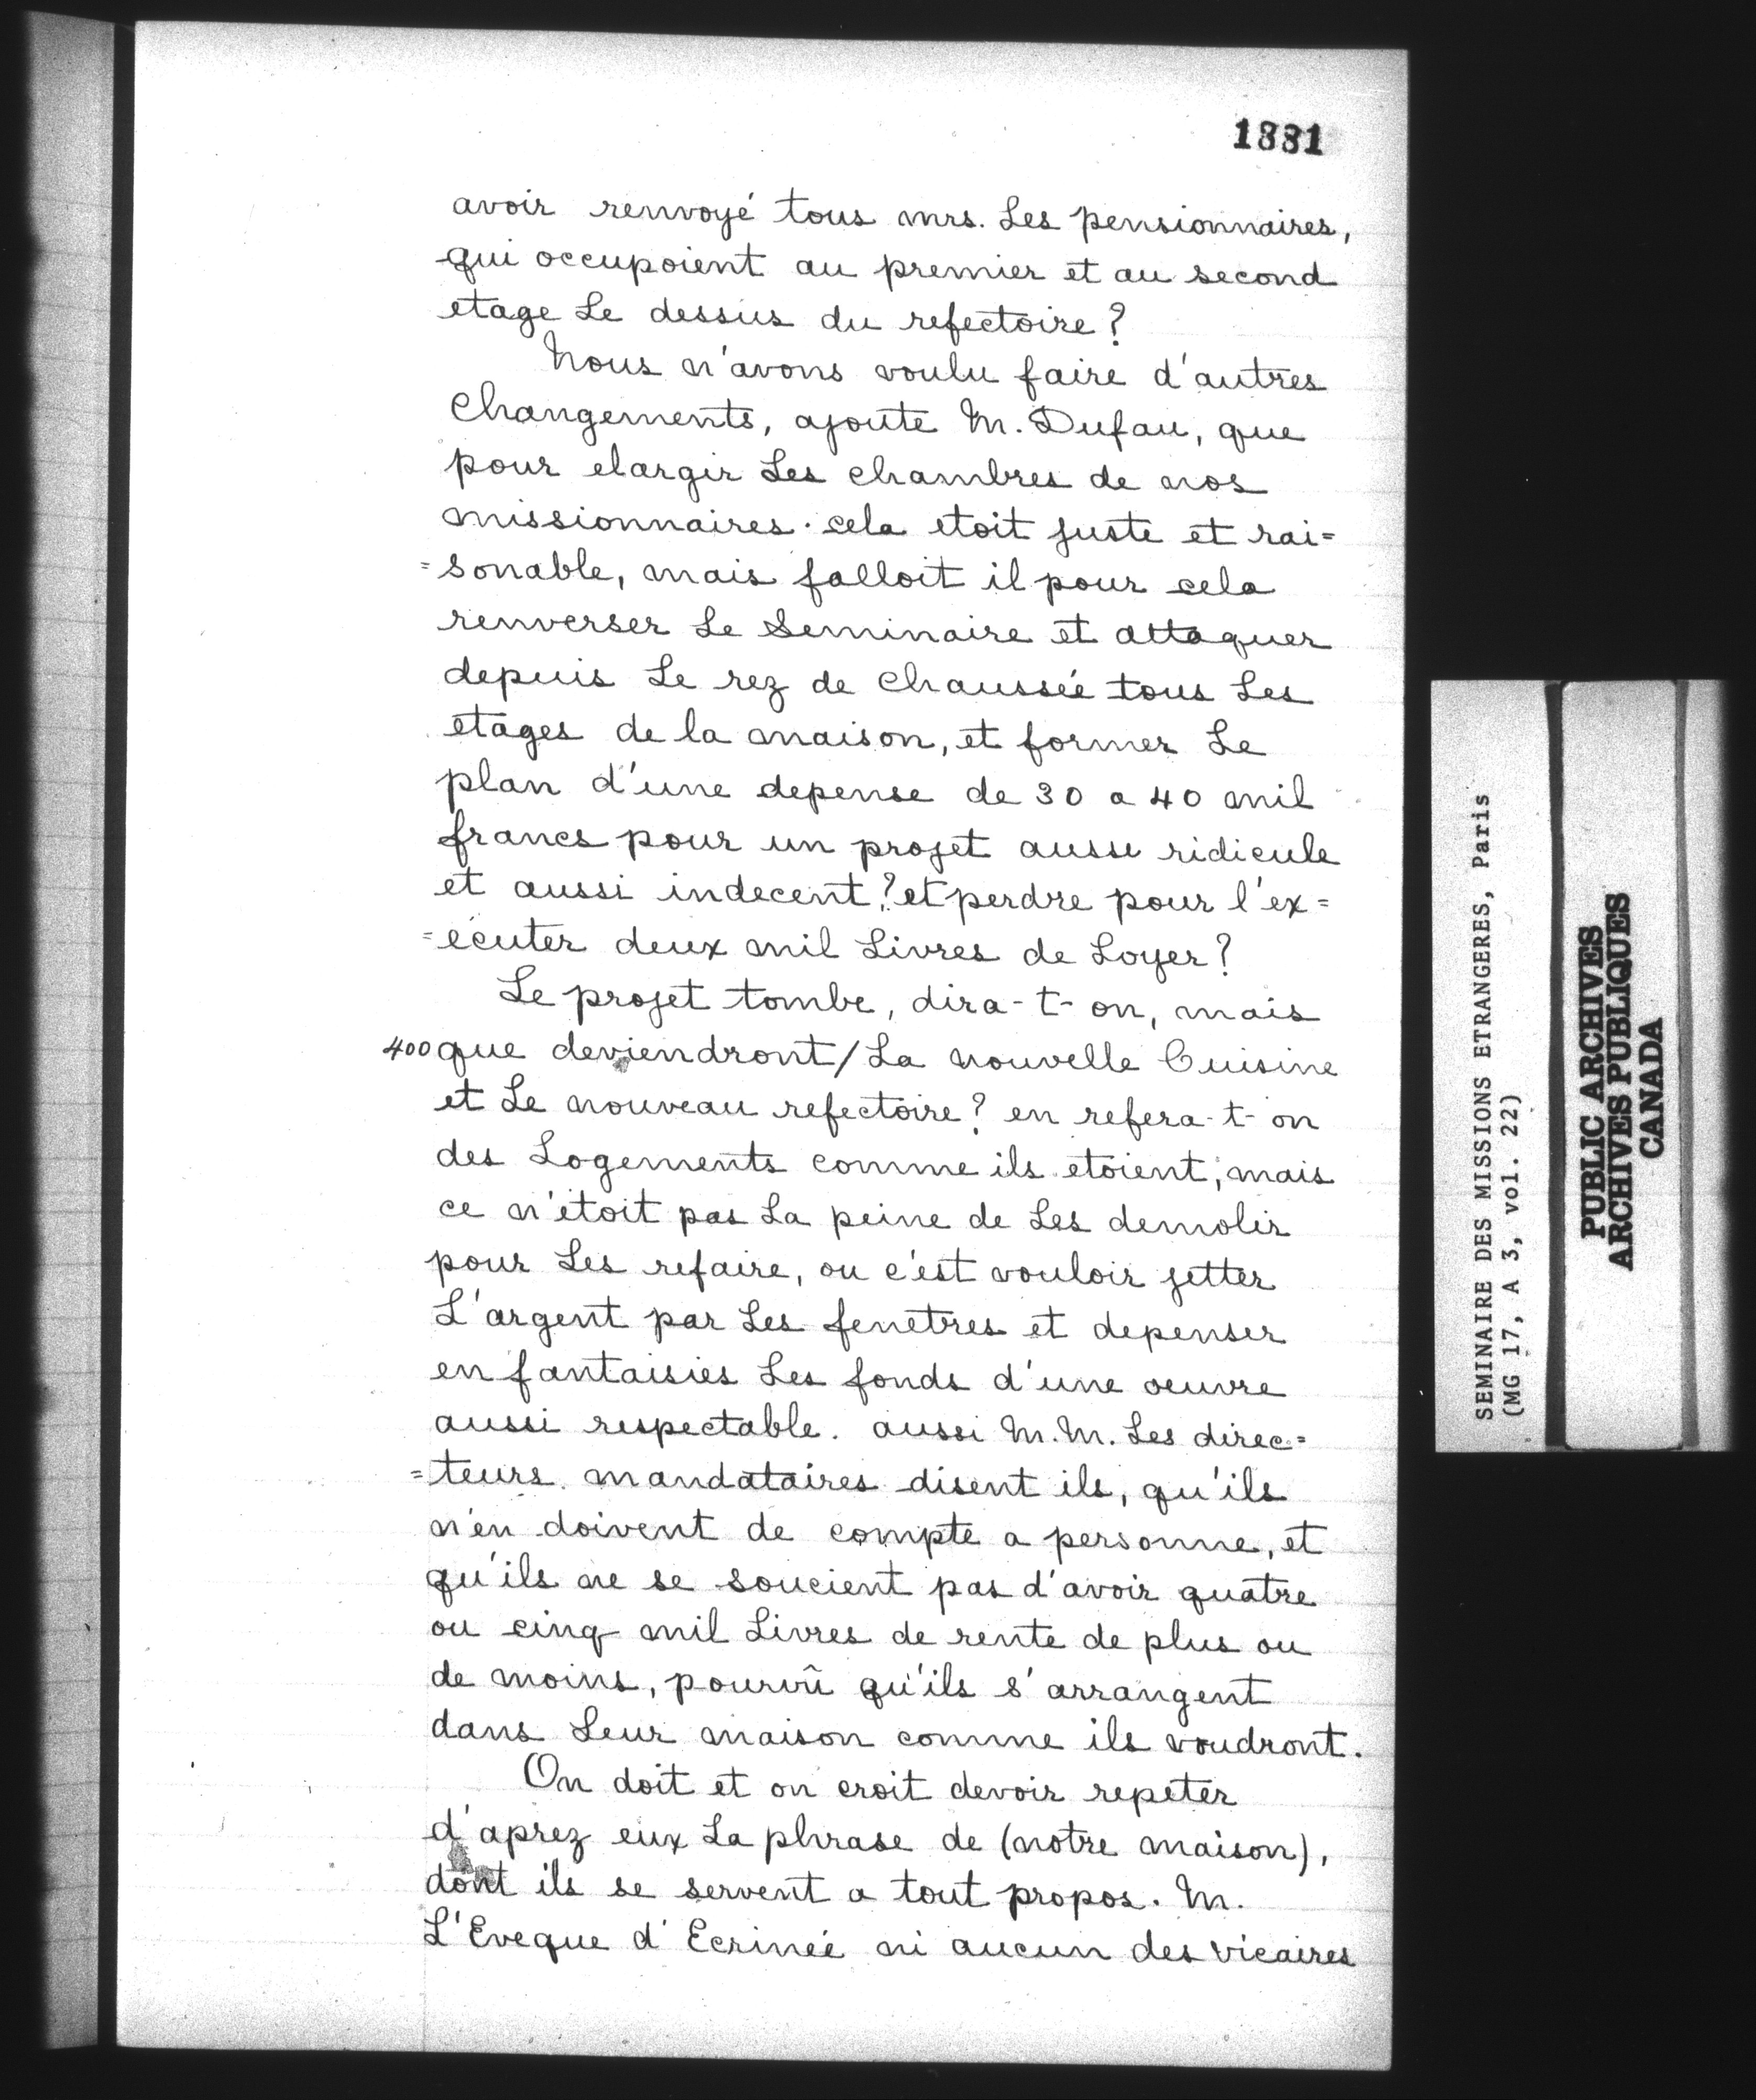 1881
avoir renvoyé tous mrs. Les pensionnaires,
qui occupoient au premier et au second
etage Le dessus du refectoire?
Nous n'avons voulu faire d'autres
changements, ajoute M. Dufau, que
pour elargir Les chambres de nos
missionnaires. cela etoit juste et rai=
=sonable, mais falloit il pour cela
renverser Le Seminaire et attaquer
depuis Le rez de chaussée tous Les
etages de la maison, et former Le
plan d'une depense de 30 a 40 mil
francs pour un projet aussi ridicule
et aussi indecent? et perdre pour l'ex=
=ecuter deux mil Livres de Loyer?
Le projet tombe, dira-t-on, mais
400 que deviendront/La nouvelle Cuisine
et Le nouveau refectoire? en refera-t-on
des Logements comme ils etoient; mais
ce n'étoit pas La peine de Les demolir
pour Les refaire, ou c'est vouloir jetter
L'argent par Les fenetres et depenser
en fantaisies Les fonds d'une oeuvre
aussi respectable. aussi M.M. Les direc=
=teurs mandataires disent ils, qu'ils
n'en doivent de compte a personne, et
qu'ils ne se soucient pas d'avoir quatre
ou cinq mil Livres de rente de plus ou
de moins, pourvû qu'ils s'arrangent
dans Leur maison comme ils voudront.
On doit et on croit devoir repeter
d'aprez eux La phrase de (notre maison),
dont ils se servent a tout propos. M.
L'Eveque d'Ecrineé ni aucun des vicaires
SEMINAIRE DES MISSIONS ETRANGERES, Paris
(MG 17, A 3, vol. 22)
PUBLIC ARCHIVES
ARCHIVES PUBLIQUES
CANADA